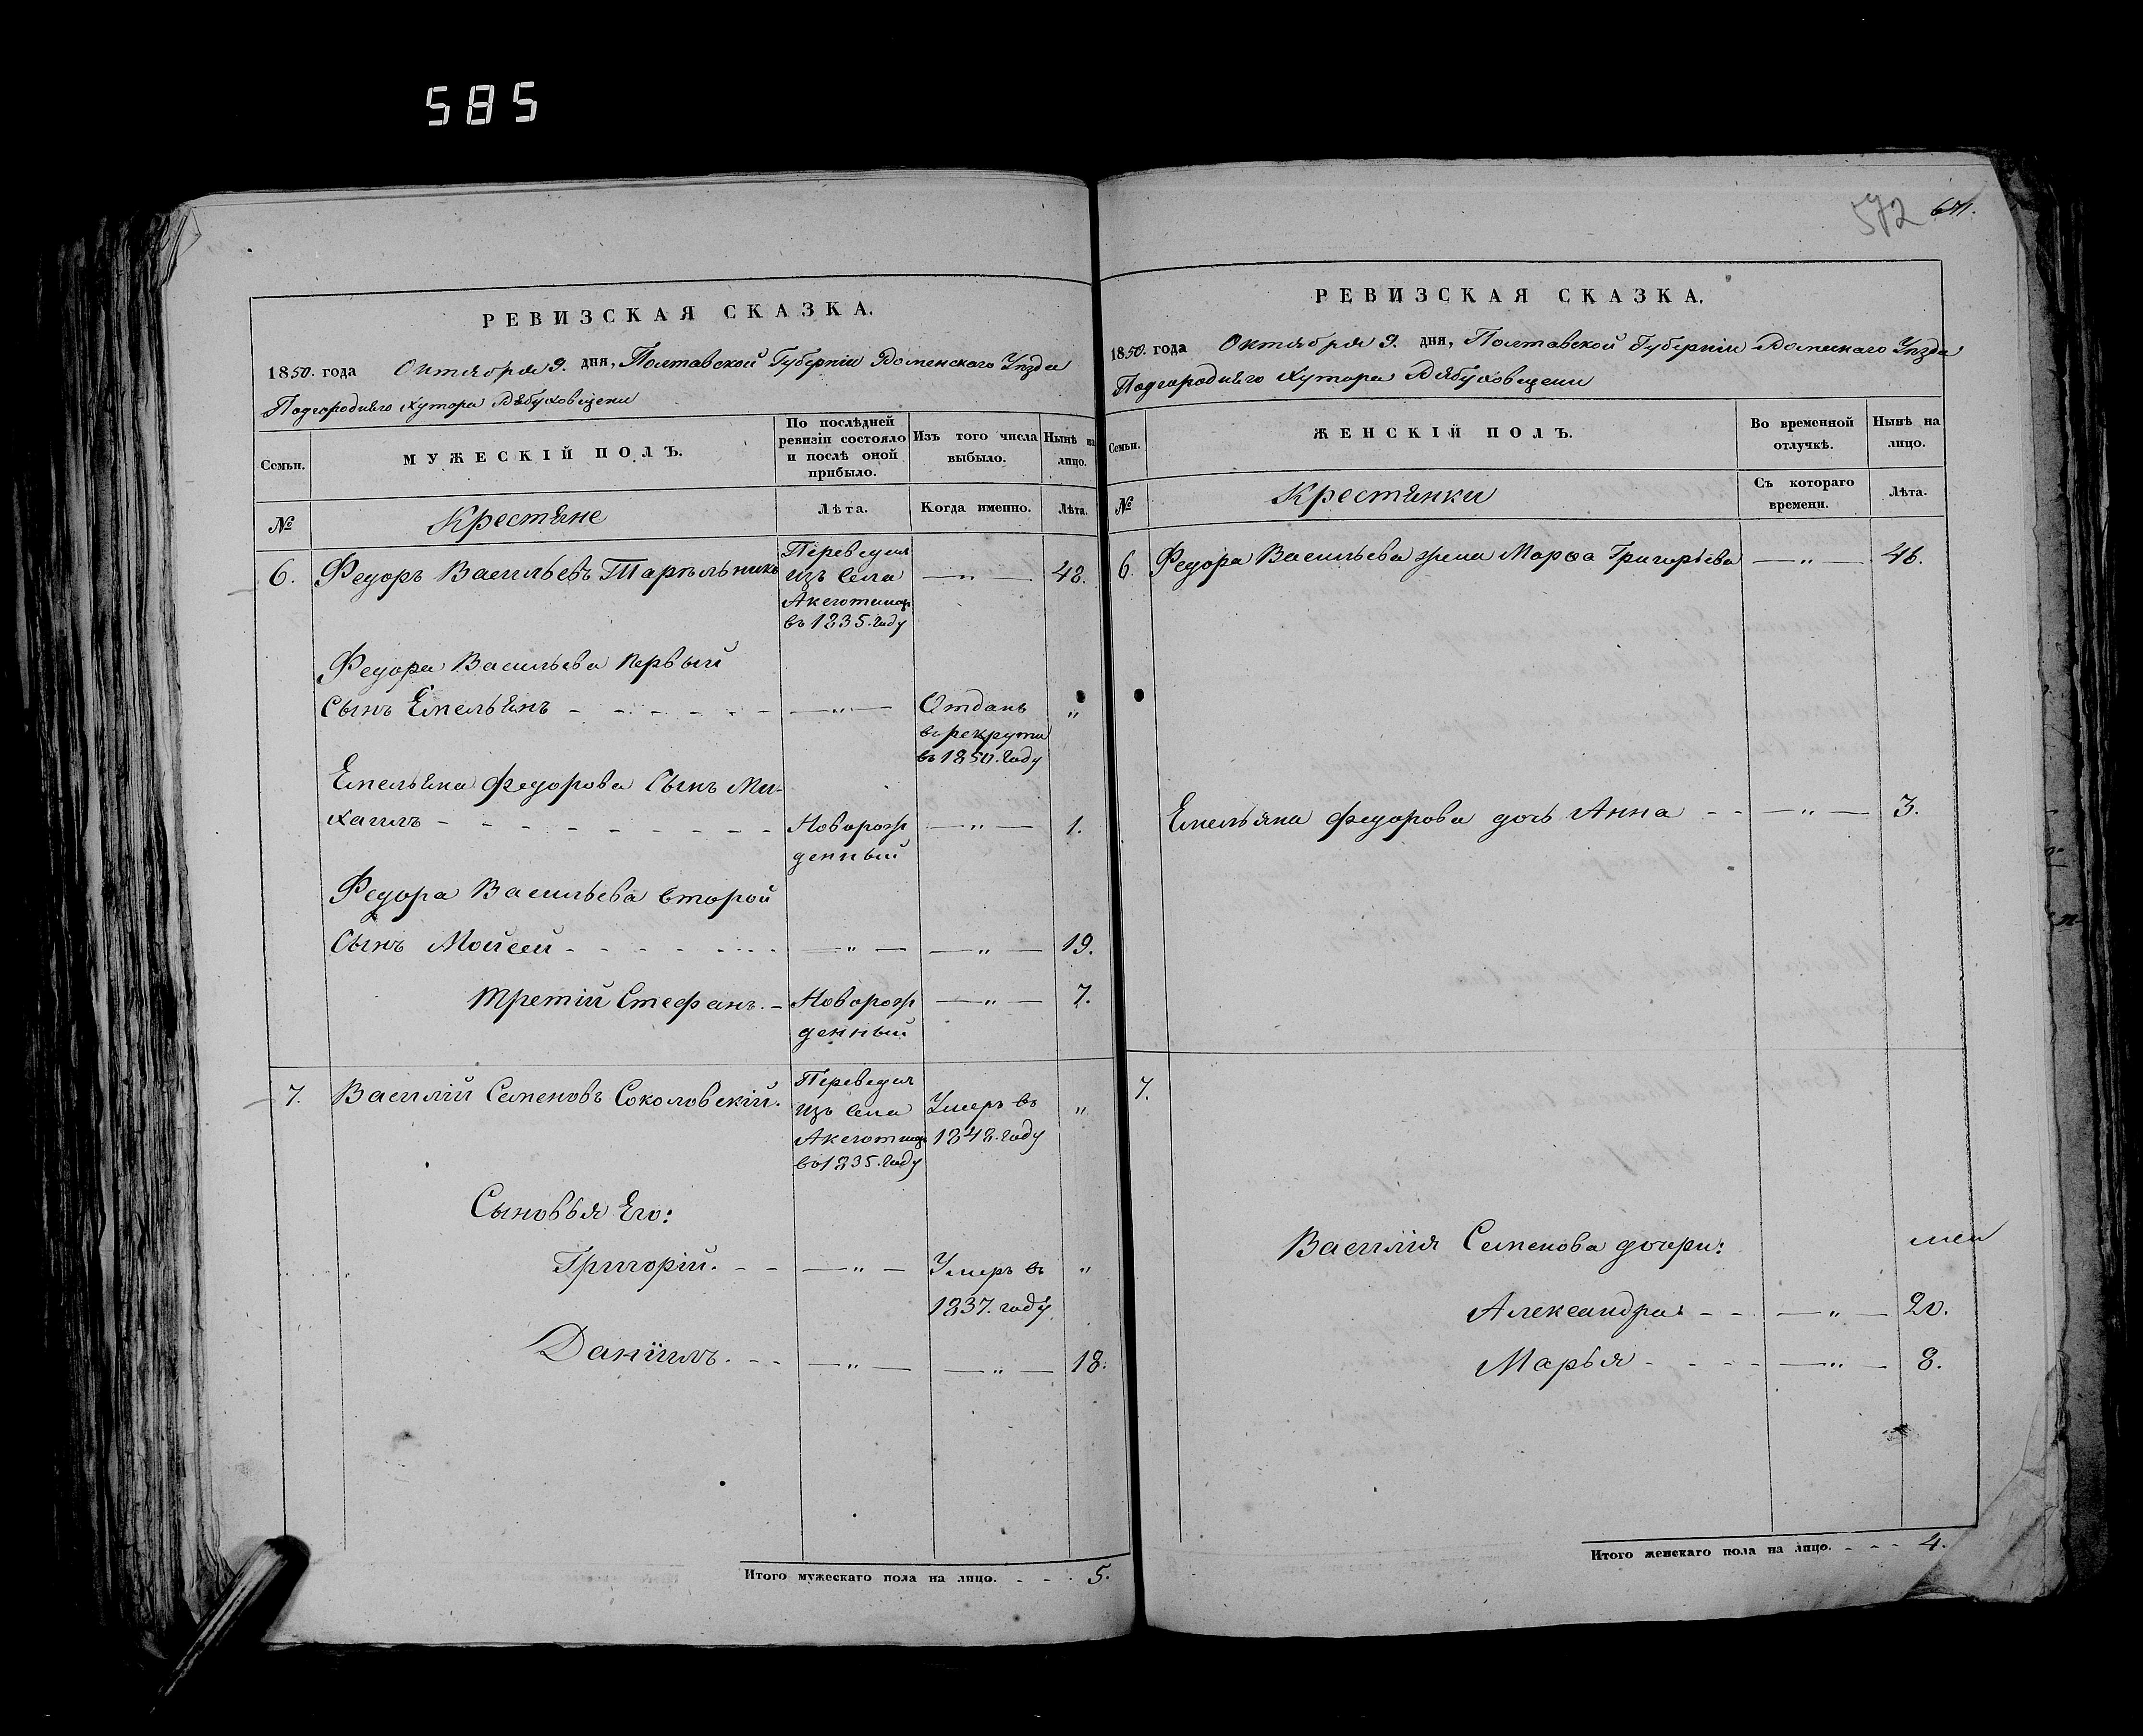 585
572
РЕВИЗСКАЯ СКАЗКА.
1850. года Октября 9. дня, Полтавской Губерніи Роменскаго Уѣзда
Подгороднѣго Хутора
МУЖЕСКІЙ ПОЛЪ.
Семьи.
По послѣдней ревизіи состояло и послѣ оной прибыло.
Изъ того числа выбыло.
Нынѣ на лицо.
№
Крестяне
Лѣта.
Когда именно.
Лѣта.
6. Федоръ Васильевъ Тарѣльникъ
Переведен
изъ села
въ 1835. году
— „ —
48.
Федора Васильева первый
Сынъ Емельянъ — „ —
Отданъ
въ рекруты
въ 1850. году
„
Емельяна Федорова Сынъ Ми-
хаилъ
Новорож
денный
— „ —
1.
Федора Васильева второй
Сынъ Мойсей — „ — — „ — 19.
третій Стефанъ. Новорож — „ — 7.
денный
7. Василій Семеновъ Соколовскій.
Переведен
изъ села
въ 1835. году
Умеръ въ
1848. году
„
Сыновья Его:
Григорій. — „ — Умеръ въ „
1837. году
Даніилъ. — „ — — „ — 18.
Итого мужескаго пола на лицо. - - - 5.
РЕВИЗСКАЯ СКАЗКА.
1850. года Октября 9. дня, Полтавской Губерніи Роменскаго Уѣзда
Подгороднѣго Хутора
Семьи.
ЖЕНСКІЙ ПОЛЪ.
Во временной отлучкѣ.
Нынѣ на лицо.
№
Крестянки
Съ котораго времени.
Лѣта.
6. Федора Васильева жена Марѳа Григорьева — „ — 46.
Емельяна Федорова дочь Анна — „ — 3.
7.
Василія Семенова дочери:
Александра — „ — 20.
Марья — „ — 8.
Итого женскаго пола на лицо. - - - 4.